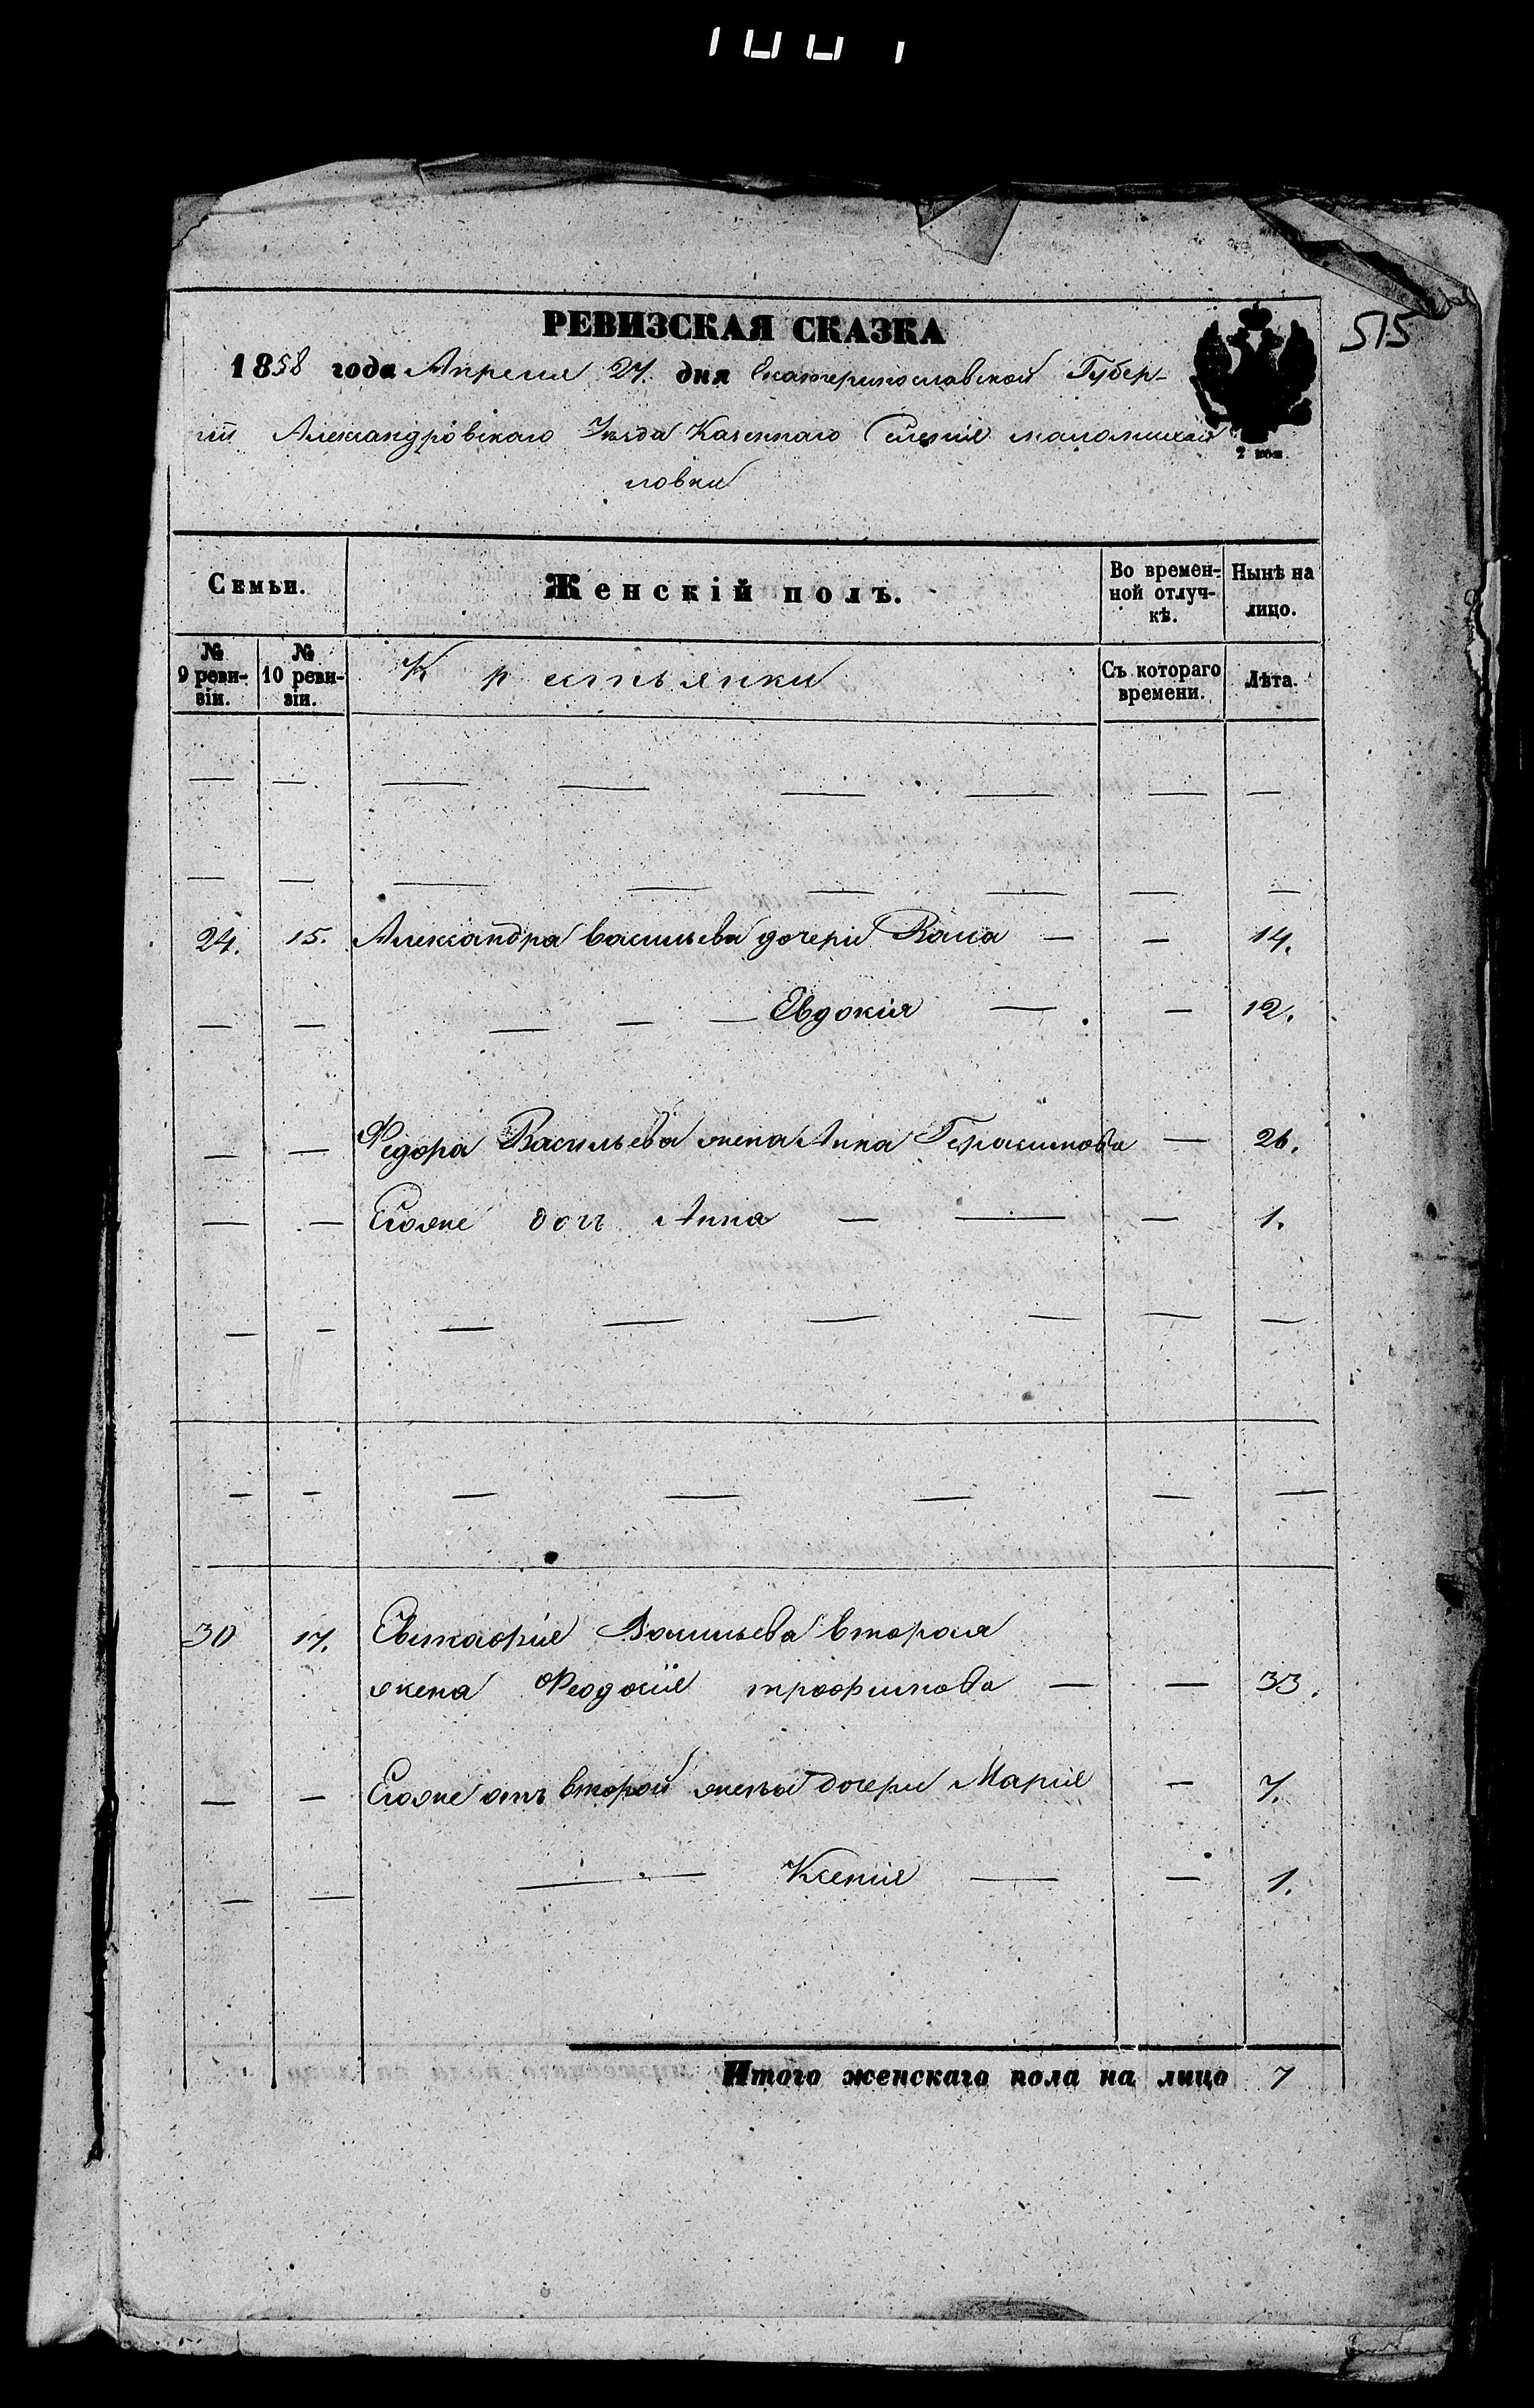 515
РЕВИЗСКАЯ СКАЗКА
1858 года Апреля 27. дня Екатеринославской Губер-
ніи Александровскаго Уезда Казеннаго Селенія маломихай
ловки
2 коп.
Семьи. Женскій полъ. Во времен- Нынѣ на
ной отлуч- лицо.
кѣ.
№ № Крестьянки Съ котораго Лѣта.
9 реви- 10 реви- времени.
зіи. зіи.
— — — — — — — —
— — — — — — — —
24. 15. Александра васильева дочери — — 14.
— — — — — Евдокія — — 12.
— — Федора Васильева жена Анна Герасимова — 26.
— — Егоже дочь Анна — — — 1.
— — — — — — — —
— — — — — — —
30 17. Евстафія Васильева вторая
жена Феодосія трофимова — — 33.
— — Егоже отъ второй жены дочери Марія — 7.
— — — Ксенія — — 1.
Итого женскаго пола на лицо 7